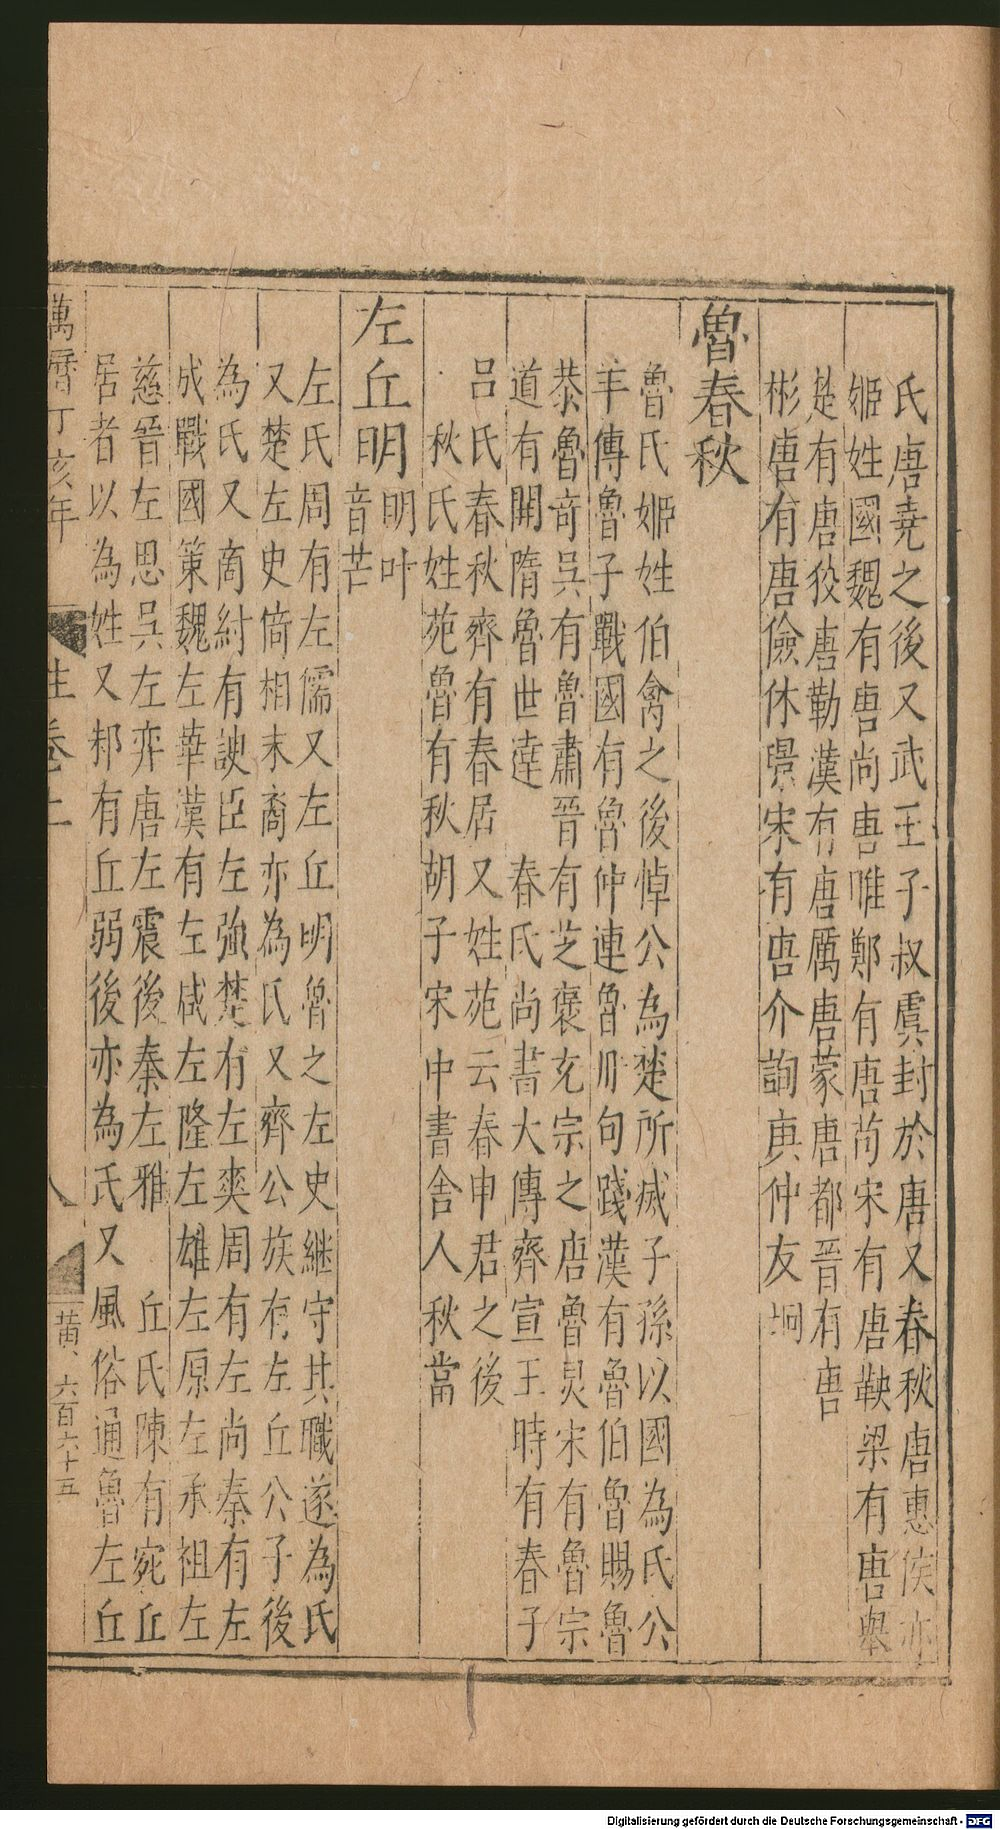 氏唐堯之後又武王子叔虞封於唐又春秋唐惠侯亦
姬姓國魏有唐尚唐唯鄭有唐茍宋有唐鞅梁有唐舉
楚有唐狡唐勒漢有唐厲唐蒙唐都晉有唐
彬唐有唐儉休璟宋有唐介詢庚仲友坰
魯春秋
魯氏姬姓伯禽之後悼公為楚所滅子孫以國為氏公
羊傳魯子戰國有魯仲連魯川句踐漢有魯伯魯賜魯
恭魯奇吳有魯肅晉有芝褒充宗之唐魯炅宋有魯宗
道有開隋魯世達 春氏尚書大傳齊宣王時有春子
呂氏春秋齊有春居又姓苑云春申君之後
秋氏姓苑魯有秋胡子宋中書舍人秋當
左丘明明叶音芒
左氏周有左儒又左丘明魯之左史継守其職遂為氏
又楚左史倚相末裔亦為氏又齊公族有左丘公子後
為氏又商紂有諛臣左強楚有左奭周有左尚秦有左
成戰國策魏左華漢有左咸左隆左雄左原左承祖左
慈晉左思吳左弈唐左震後秦左雅 丘氏陳有宛丘
居者以為姓又邾有丘弱後亦為氏又風俗通魯左丘
萬曆丁亥年 姓卷上 八 黃 六百六十五
Digitalisierung gefördert durch die Deutsche Forschungsgemeinschaft - DFG